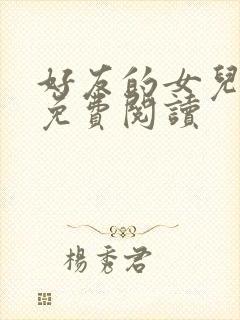 好友的女兒
免費閱讀
楊秀君